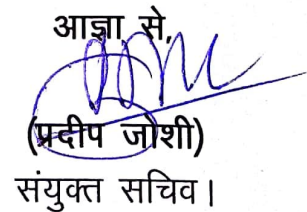 आज्ञा से,
(प्रदीप जोशी)
संयुक्त सचिव।